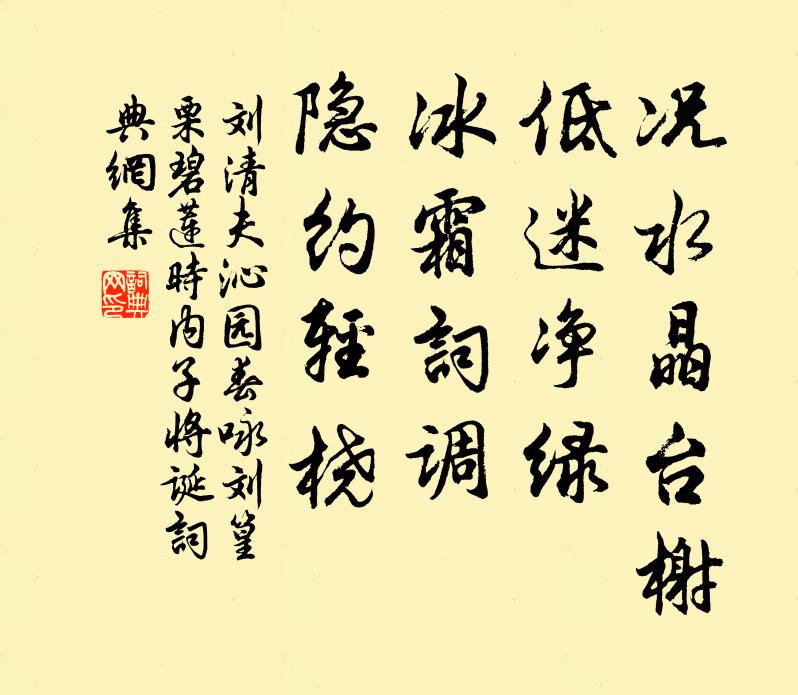 况水晶台榭
低迷净绿
冰霜詞调
隐约轻桡
刘清夫沁园春咏刘篁
栗碧莲時内子将诞詞
典網集
詞典網印